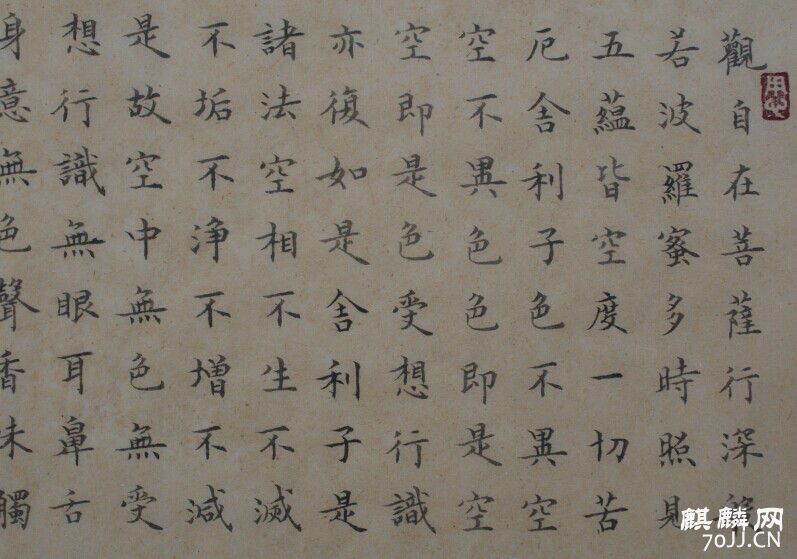 觀自在菩薩行深般
若波羅蜜多時照見
五蘊皆空度一切苦
厄舍利子色不異空
空不異色色即是空
空即是色受想行識
亦復如是舍利子是
諸法空相不生不滅
不垢不淨不增不減
是故空中無色無受
想行識無眼耳鼻舌
身意無色聲香味觸
麒麟网
70JJ.CN